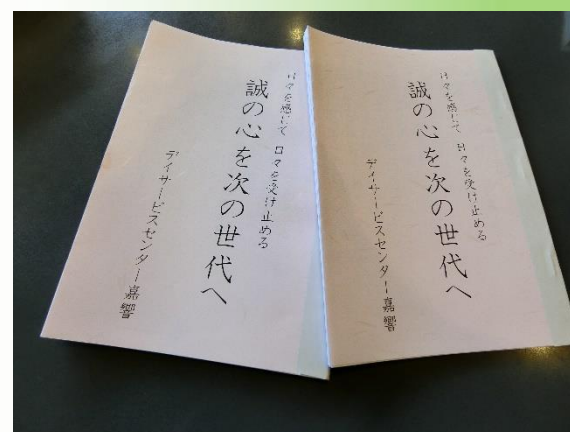 日々を感じて 日々を受け止める
誠の心を次の世代へ
デイサービスセンター嘉響
日々を感じて 日々を受け止める
誠の心を次の世代へ
デイサービスセンター嘉響